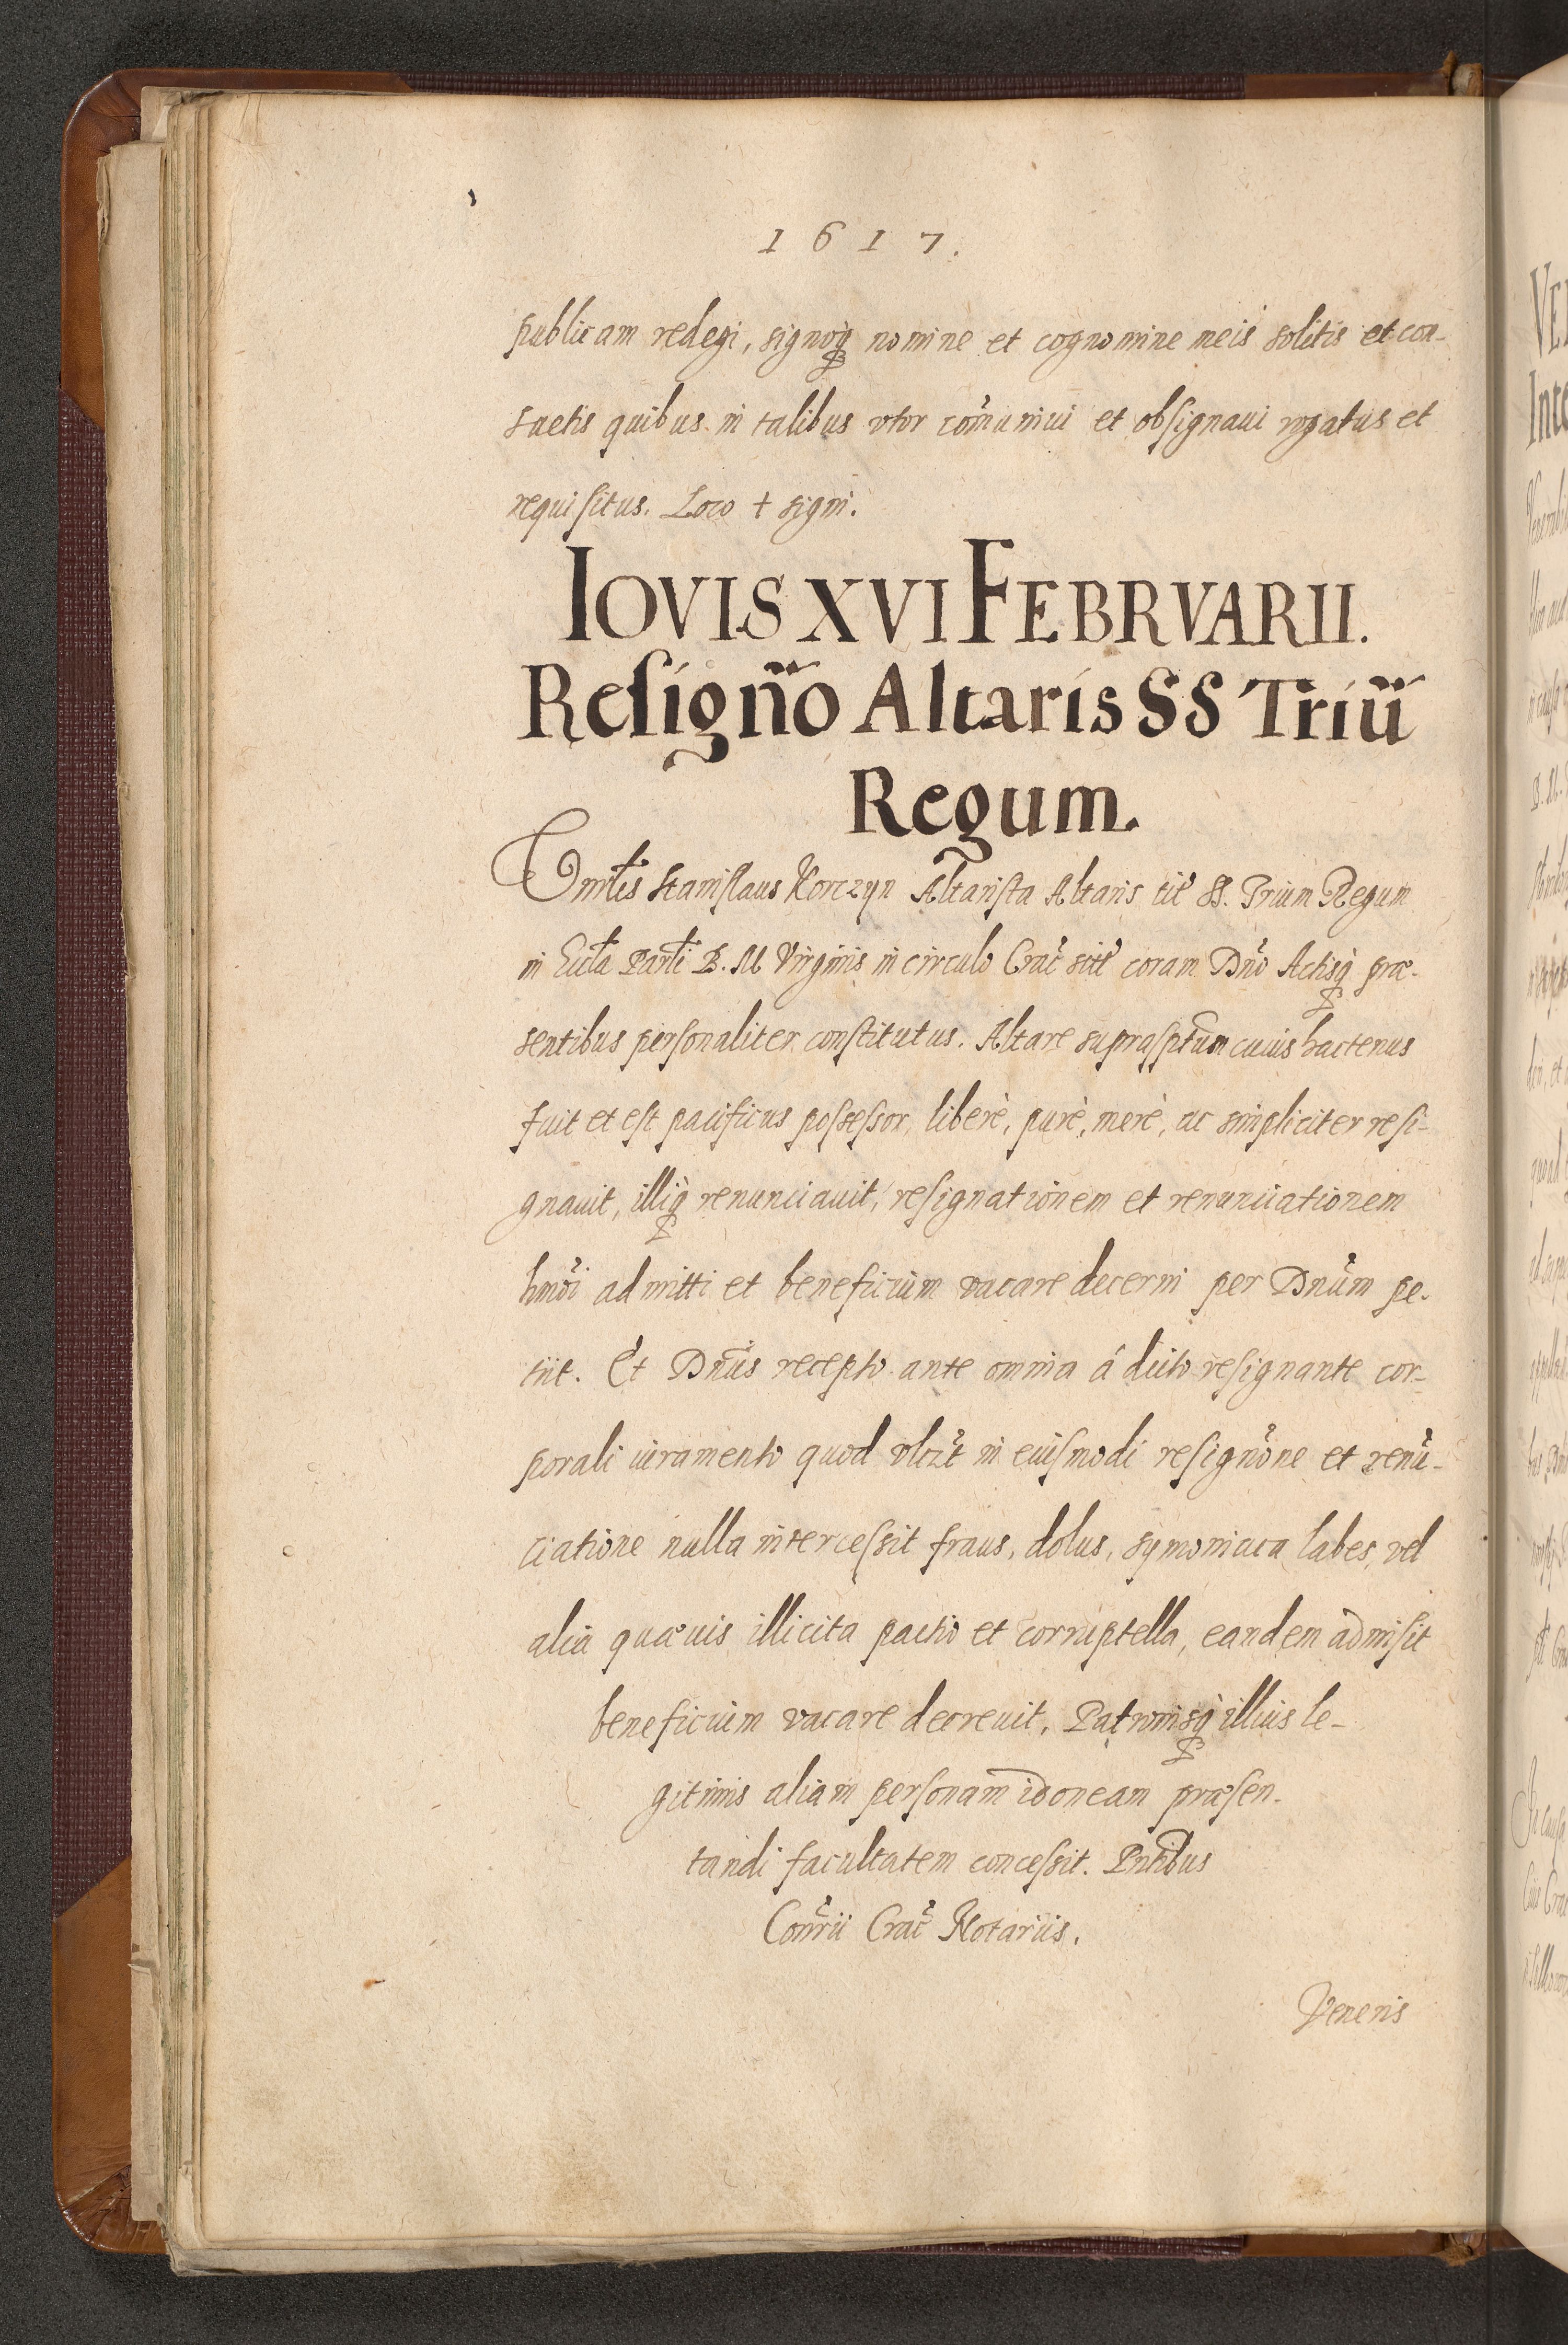 1617.
publicam redegi, signoq₃ nomine et cognomine meis solitis et con-
suetis quibus in talibus vtor cõmuniui et obsignaui rogatus et
requisitus. Loco + signi.
IOVIS XVI FEBRVARII.
Resigño Altaris SS Triũ
Regum.
Stanislaus Korczyn Altarista Altaris tit̃ SS. Trium Regum
in Eccła Parłi B. M Virginis in circulo Crac̃ sitẽ coram Dño Actisq₃ præ-
sentibus personaliter constitutus. Altare suprasp̃tum cuius hactenus
fuit et est pacificus possessor, liberè, purè, merè, ac simpliciter resi-
gnauit, illiq₃ renunciauit, resignationem et renunciationem
hmõi admitti et beneficium vacare decerni per Dnũm pe-
tiit. Et Dnũs recepto ante omnia á dicto resignante cor-
porali iuramento quod in eiusmodi resignõne et renũ-
ciatione nulla intercessit fraus, dolus, symoniaca labes, vel
alia quæuis illicita pactio et corruptella, eandem admisit
beneficium vacare decreuit, Patronisq₃ illius le-
gitimis aliam personam idoneam præsen-
tandi facultatem concessit. Pñtibus
Conr̃ii Crac̃ Notariis.
Veneris